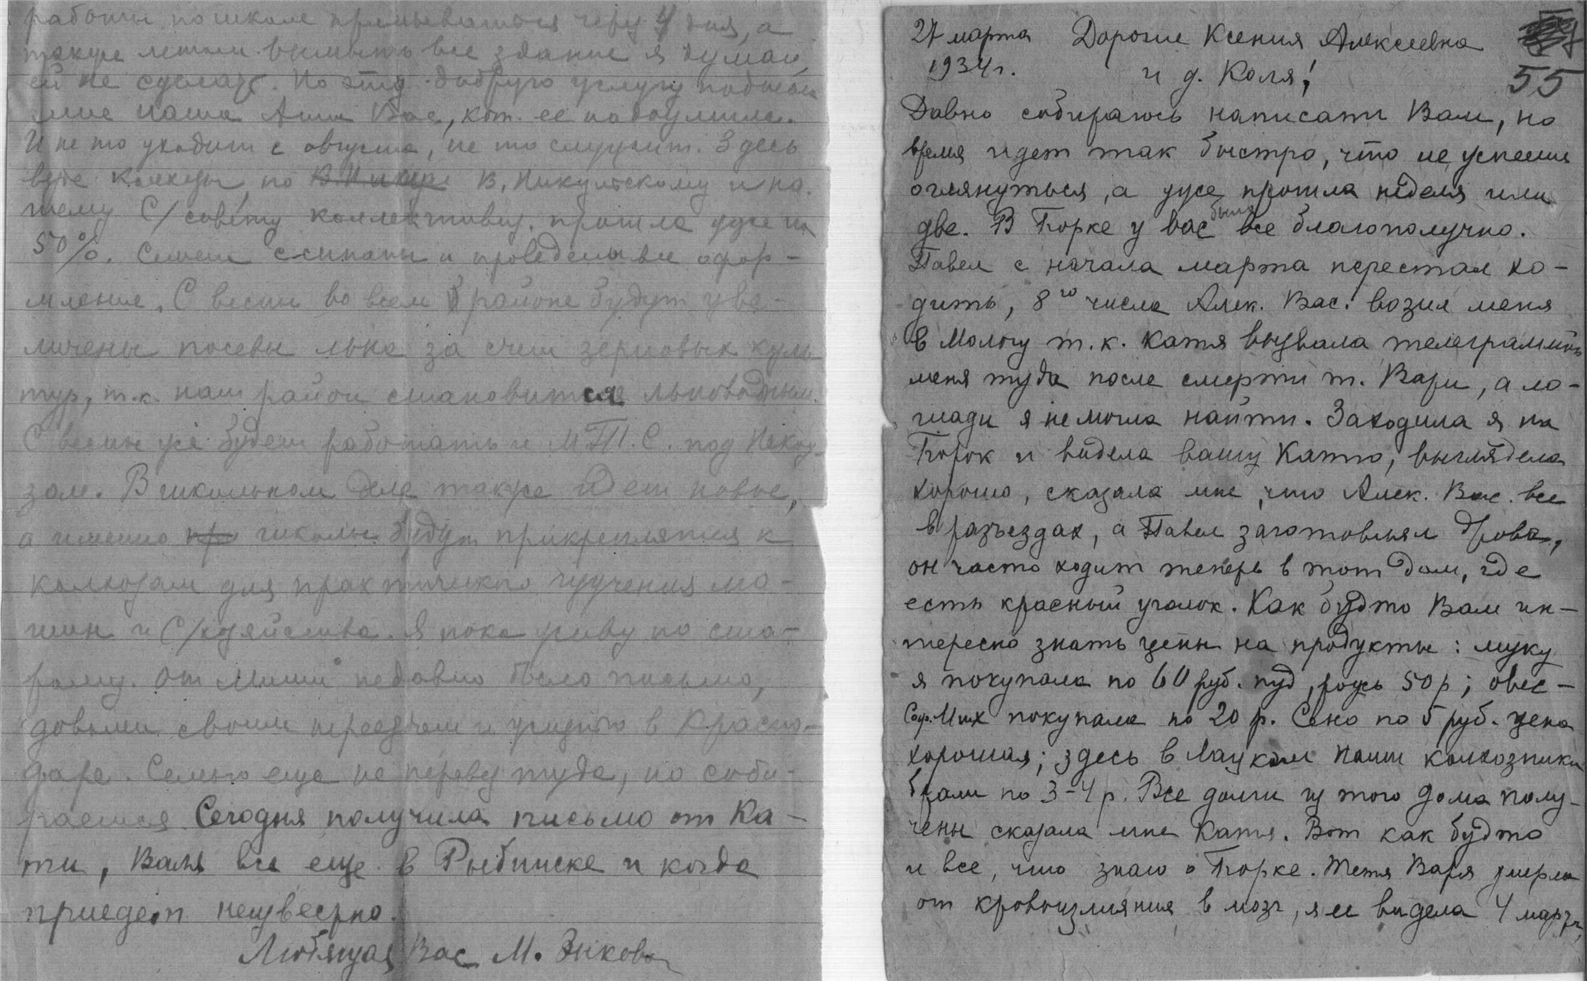 работы по школе
также летом вымыть все здание я думаю
ей не сделать. Но эту добрую услугу
мне наша Анна Вас., кот. ее надоумила.
И не то уходит с августа, не то служит. Здесь
везде колхозы, по В. Никульскому и на-
шему С/совету коллективиз. прошла уже на
50%. Семена ссыпаны и проведены все офор-
мления. С весны во всем районе будут уве-
личены посевы льна за счет зерновых куль
тур, т.к. наш район становится льноводным.
С весны уже будет работать и М.Т.С. под Некоу
зом. В школьном деле также идет новое,
а именно школы будут прикрепляться к
колхозам для практического изучения ма-
шин и С/хозяйства. Я пока живу по ста-
рому. От Миши недавно было письмо,
доволен своим переездом и жизнью в Красно-
даре. Семью еще не перевез туда, но соби-
рается. Сегодня получила письмо от Ка-
ти, Валя все еще в Рыбинске и когда
приедет неизвестно.
Любящая Вас М. Зыкова
27 марта Дорогие Ксения Алексеевна
1934г. и д. Коля!
55
Давно собираюсь написать Вам, но
время идет так быстро, что не успеешь
оглянуться, а уже прошла неделя или
две. В Борке у вас было все благополучно.
Павел с начала марта перестал хо-
дить, 8го числа Алек. Вас. возил меня
в Мологу т.к. Катя вызвала телеграммой
меня туда после смерти т. Вари, а ло-
шади я не могла найти. Заходила я на
Борок и видела вашу Катю, выглядела
хорошо, сказала мне, что Алек. Вас. все
в разъездах, а Павел заготовлял дрова,
он часто ходит теперь в тот дом, где
есть красный уголок. Как будто Вам ин-
тересно знать цены на продукты: муку
я покупала по 60 руб. пуд, рожь 50 р; овес -
Соф. Мих покупала по 20 р. Сено по 5 руб. цена
хорошая; здесь в наши колхозники
брали по 3-4 р. Все долги из того дома полу-
чены сказала мне Катя. Вот как будто
и все, что знаю о Борке. Тетя Варя умерла
от кровоизлияния в мозг, я ее видела 4 марта,